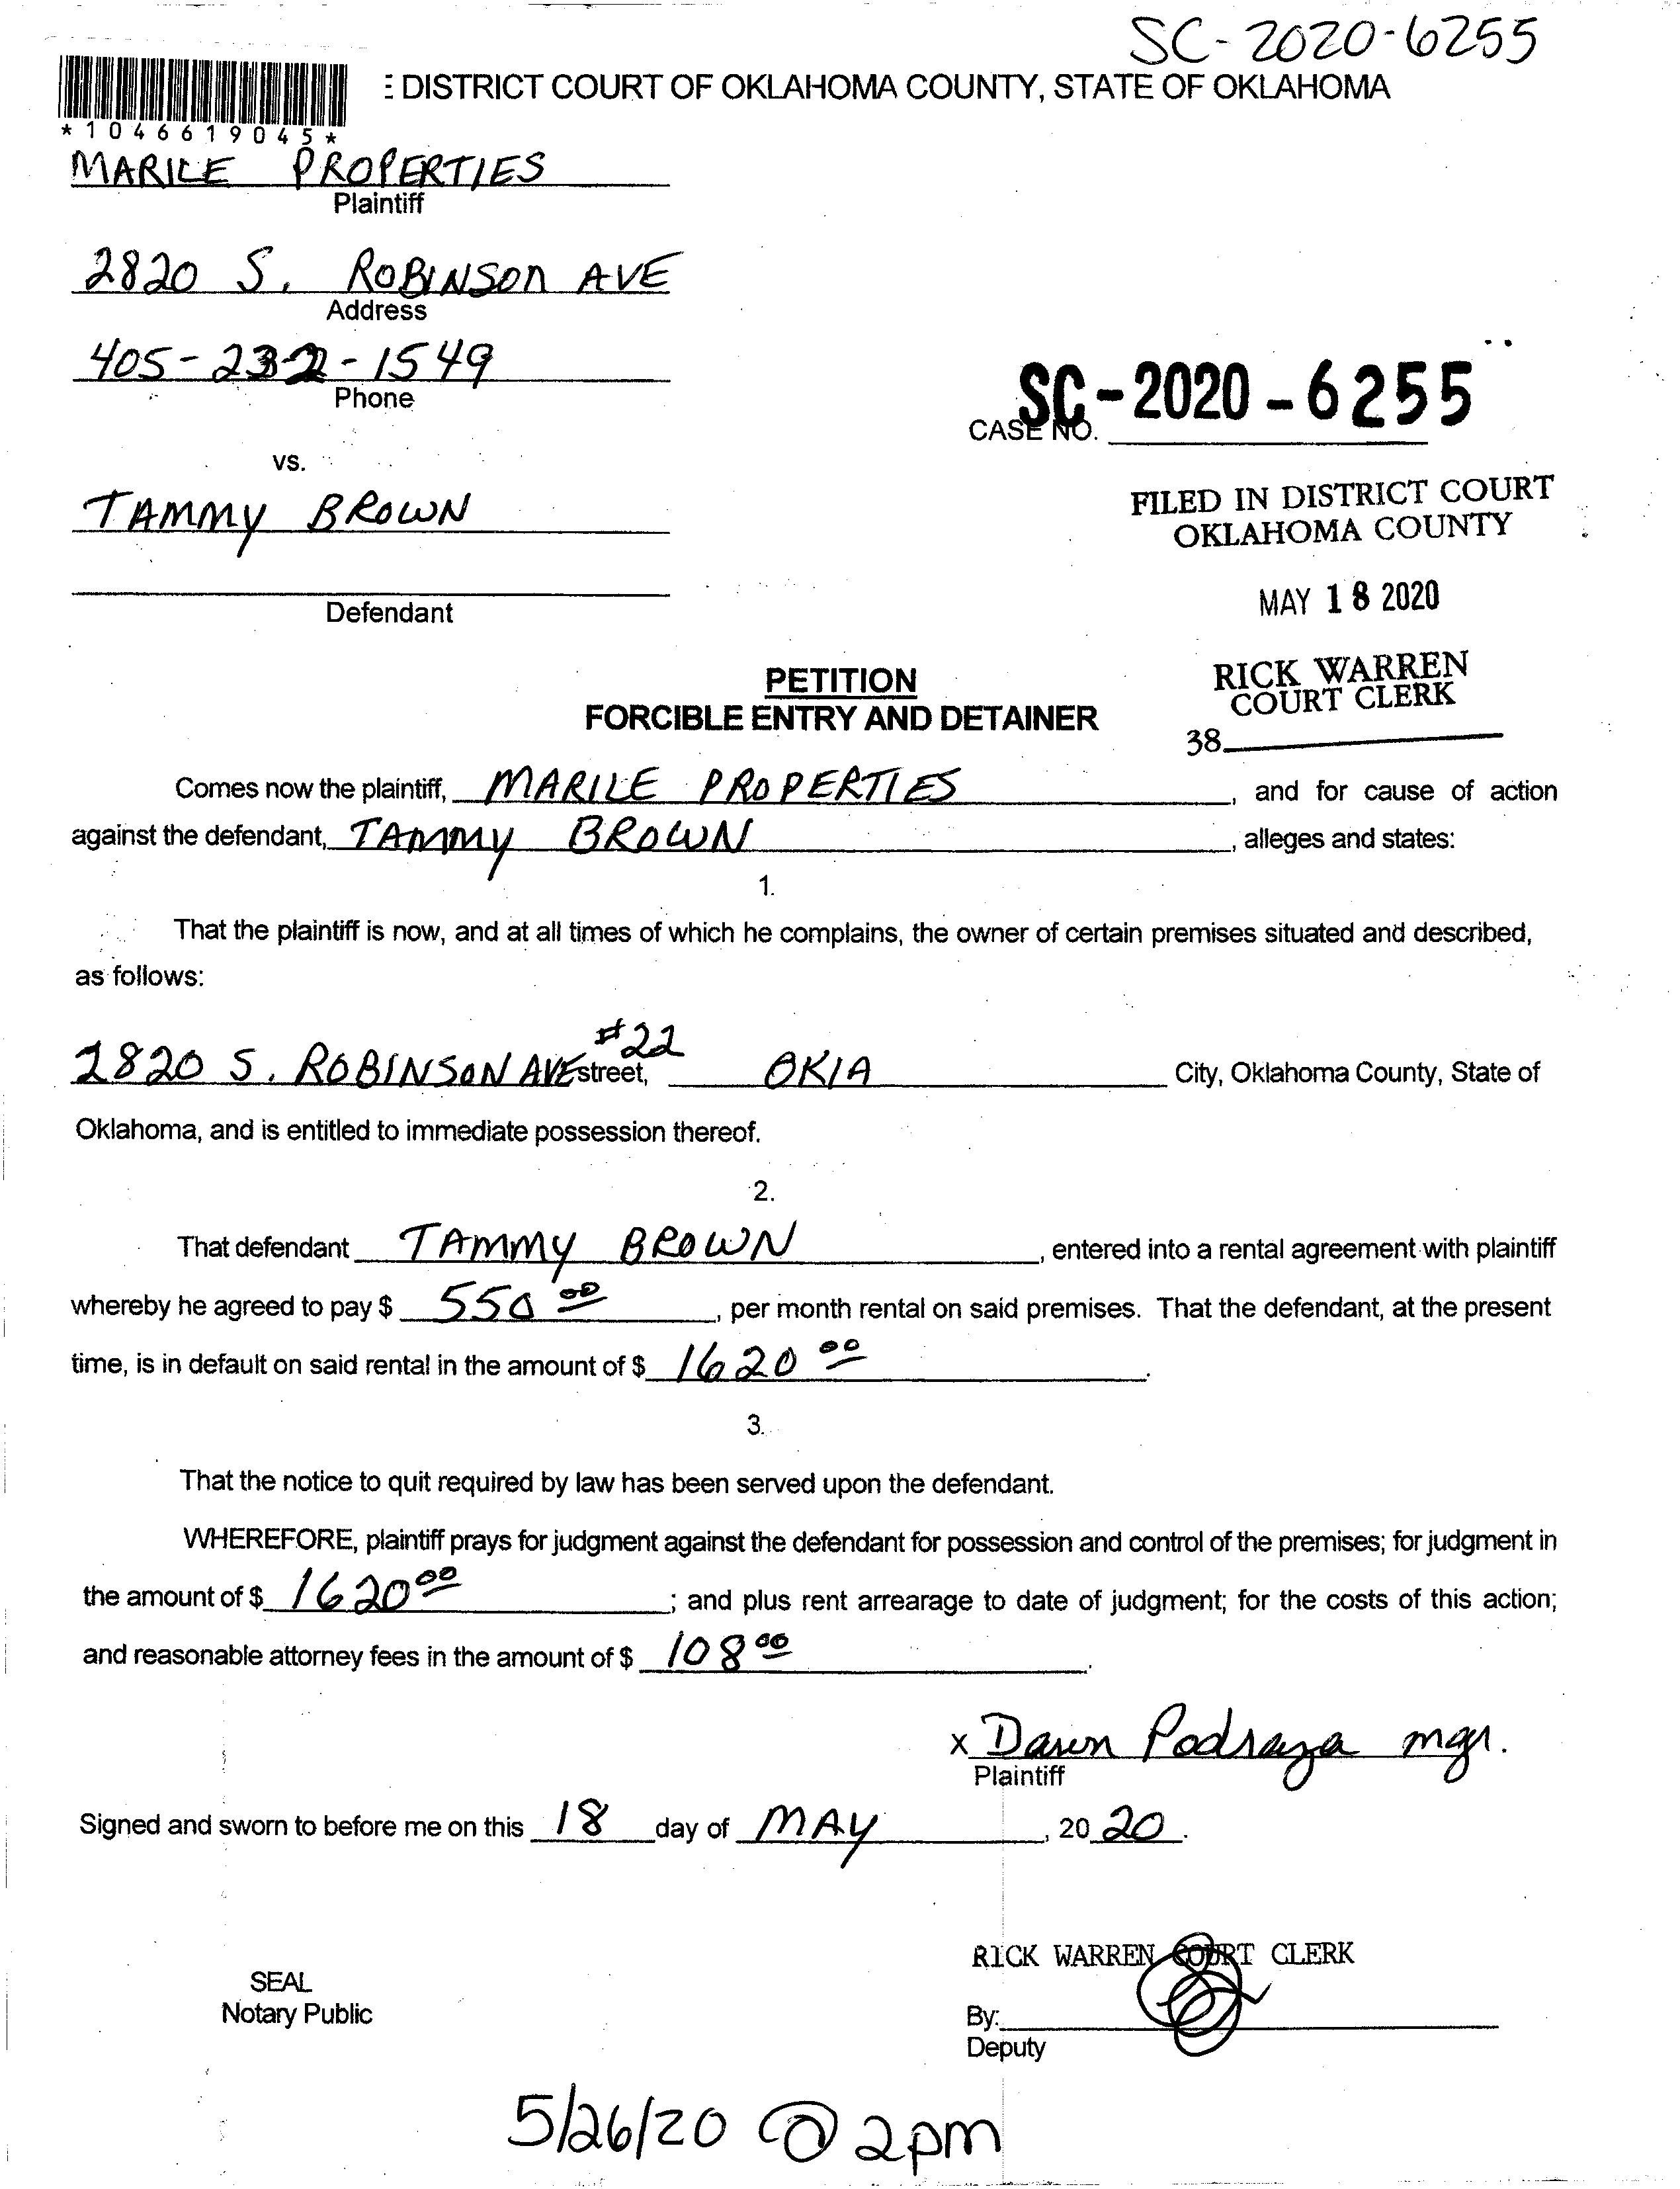 SC-2020-6255
DISTRICT COURT OF OKLAHOMA COUNTY, STATE OF OKLAHOMA
*1046619045*
MARILE PROPERTIES
Plaintiff
2820 S. ROBINSON AVE
Address
405-232-1549
Phone
SC-2020-6255
CASE NO.
vs.
TAMMY BROWN
FILED IN DISTRICT COURT
OKLAHOMA COUNTY
Defendant
MAY 18 2020
PETITION
FORCIBLE ENTRY AND DETAINER
RICK WARREN
COURT CLERK
38
Comes now the plaintiff, MARILE PROPERTIES, and for cause of action
against the defendant, TAMMY BROWN, alleges and states:
1.
That the plaintiff is now, and at all times of which he complains, the owner of certain premises situated and described,
as follows:
2820 S. ROBINSON AVE #22 street, OKlA City, Oklahoma County, State of
Oklahoma, and is entitled to immediate possession thereof.
2.
That defendant TAMMY BROWN, entered into a rental agreement with plaintiff
whereby he agreed to pay $ 550 00, per month rental on said premises. That the defendant, at the present
time, is in default on said rental in the amount of $ 1620 00.
3.
That the notice to quit required by law has been served upon the defendant.
WHEREFORE, plaintiff prays for judgment against the defendant for possession and control of the premises; for judgment in
the amount of $ 1620 00; and plus rent arrearage to date of judgment; for the costs of this action;
and reasonable attorney fees in the amount of $ 108 00.
x Dawn Podraza mgr.
Plaintiff
Signed and sworn to before me on this 18 day of MAY, 20 20.
RICK WARREN COURT CLERK
SEAL
Notary Public
By:
Deputy
5/26/20 @ 2pm